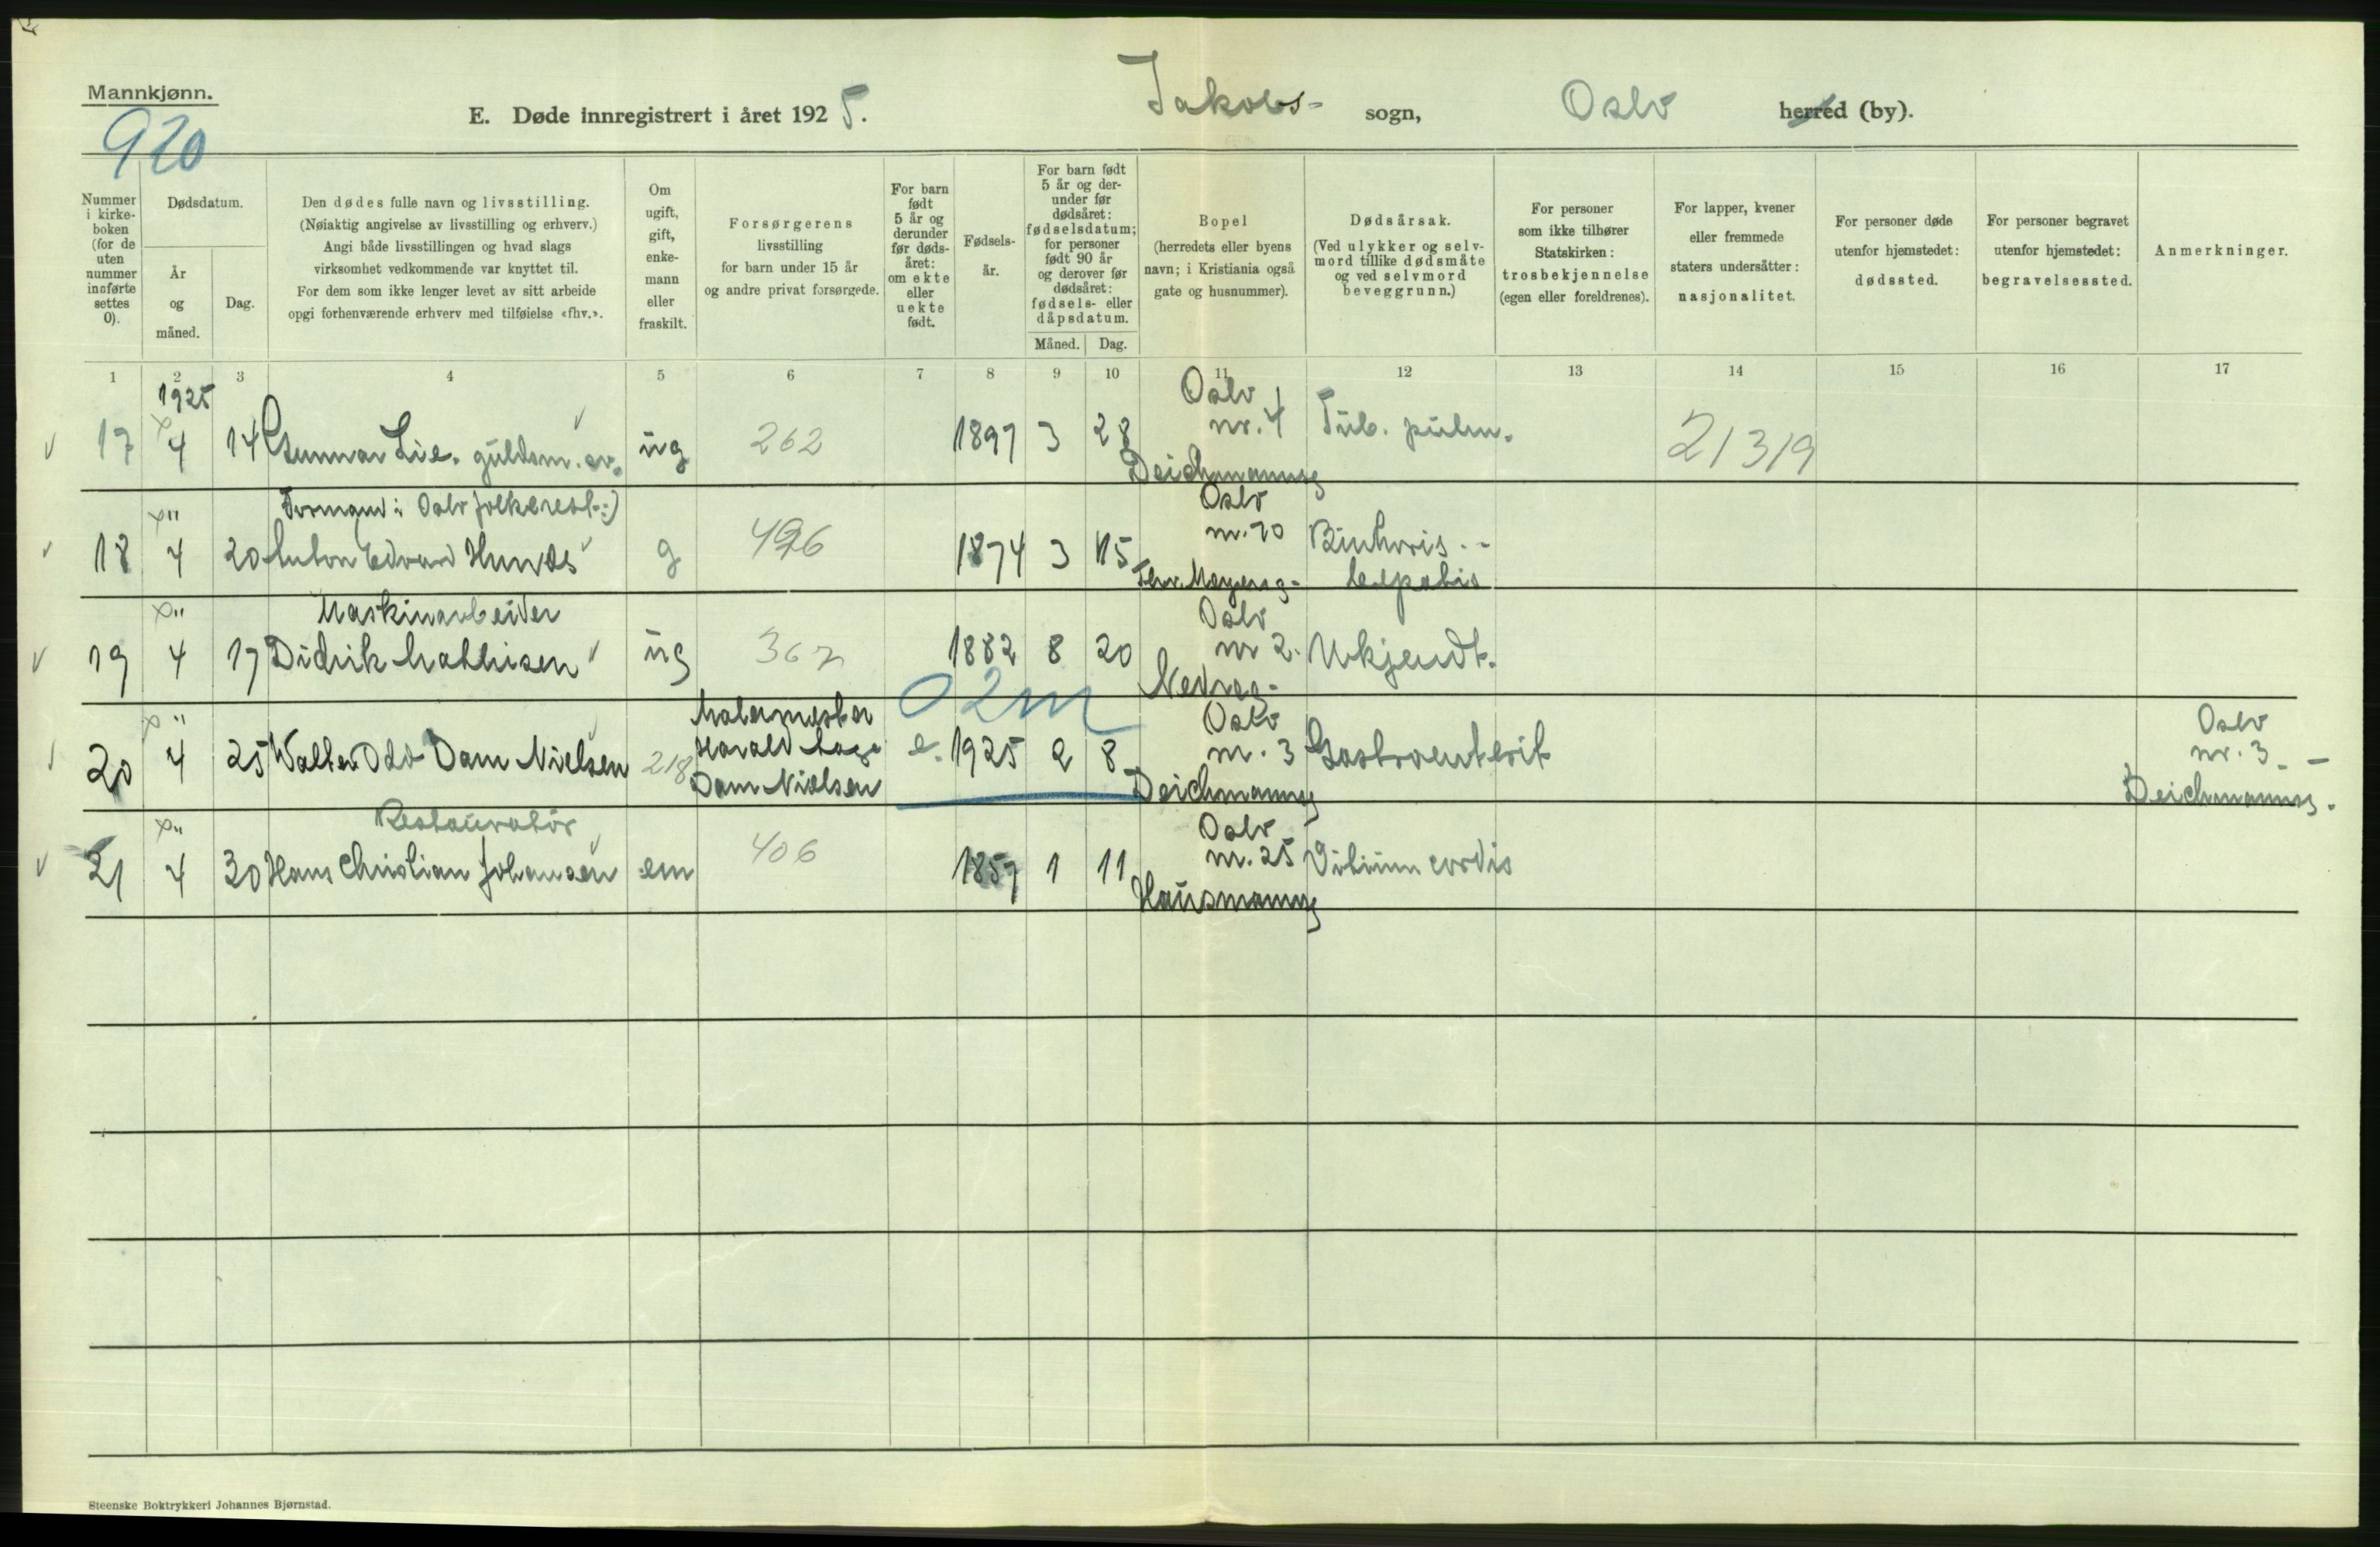 Mannkjønn.
920
E. Døde innregistrert i året 1925.
Jakobs- sogn, Oslo herred (by).
Nummer i kirkeboken (for de uten nummer innførte settes 0).
Dødsdatum.
År og måned.
Dag.
Den dødes fulle navn og livsstilling.
(Nøiaktig angivelse av livsstilling og erhverv.)
Angi både livsstillingen og hvad slags
virksomhet vedkommende var knyttet til.
For dem som ikke lenger levet av sitt arbeide
opgi forhenværende erhverv med tilføielse «fhv.».
Om ugift, gift, enkemann eller fraskilt.
Forsørgerens
livsstilling
for barn under 15 år
og andre privat forsørgede.
For barn født 5 år og derunder før dødsåret: om ekte eller uekte født.
Fødselsår.
For barn født 5 år og derunder før dødsåret: fødselsdatum; for personer født 90 år og derover før dødsåret: fødsels- eller dåpsdatum.
Måned. Dag.
Bopel
(herredets eller byens
navn; i Kristiania også
gate og husnummer).
Dødsårsak.
(Ved ulykker og selvmord tillike dødsmåte og ved selvmord beveggrunn.)
For personer
som ikke tilhører
Statskirken:
trosbekjennelse
(egen eller foreldrenes).
For lapper, kvener
eller fremmede
staters undersåtter:
nasjonalitet.
For personer døde
utenfor hjemstedet:
dødssted.
For personer begravet
utenfor hjemstedet:
begravelsessted.
Anmerkninger.
1 2 3 4 5 6 7 8 9 10 11 12 13 14 15 16 17
1925
17 4 14 Gunnar Lie. guldsm. ug 262 1897 3 28 Oslo nr. 4 Deichmannsg Tub. pulm. 21319
Formand i Oslo folkerest.
18 4 20 Anton Edvard 496 g 1874 3 15 Oslo nr. 20 Thv. Meyersg-
Maskinarbeider
19 4 17 Didrik Mathisen ug 367 1882 8 20 Oslo nr 2. Nedreg- Ukjendt.
02m
20 4 25 Walter Odd Dam Nielsen 218 Malermester Harald Aage Dam Nielsen e. 1925 2 8 Oslo nr. 3 Deichmannsg Gastroenterit Oslo nr. 3 Deichmannsg.
Restauratør
21 4 30 Hans Christian Johansen em 406 1857 1 11 Oslo nr. 25 Hausmannsg Vitium cordis
Steenske Boktrykkeri Johannes Bjørnstad.